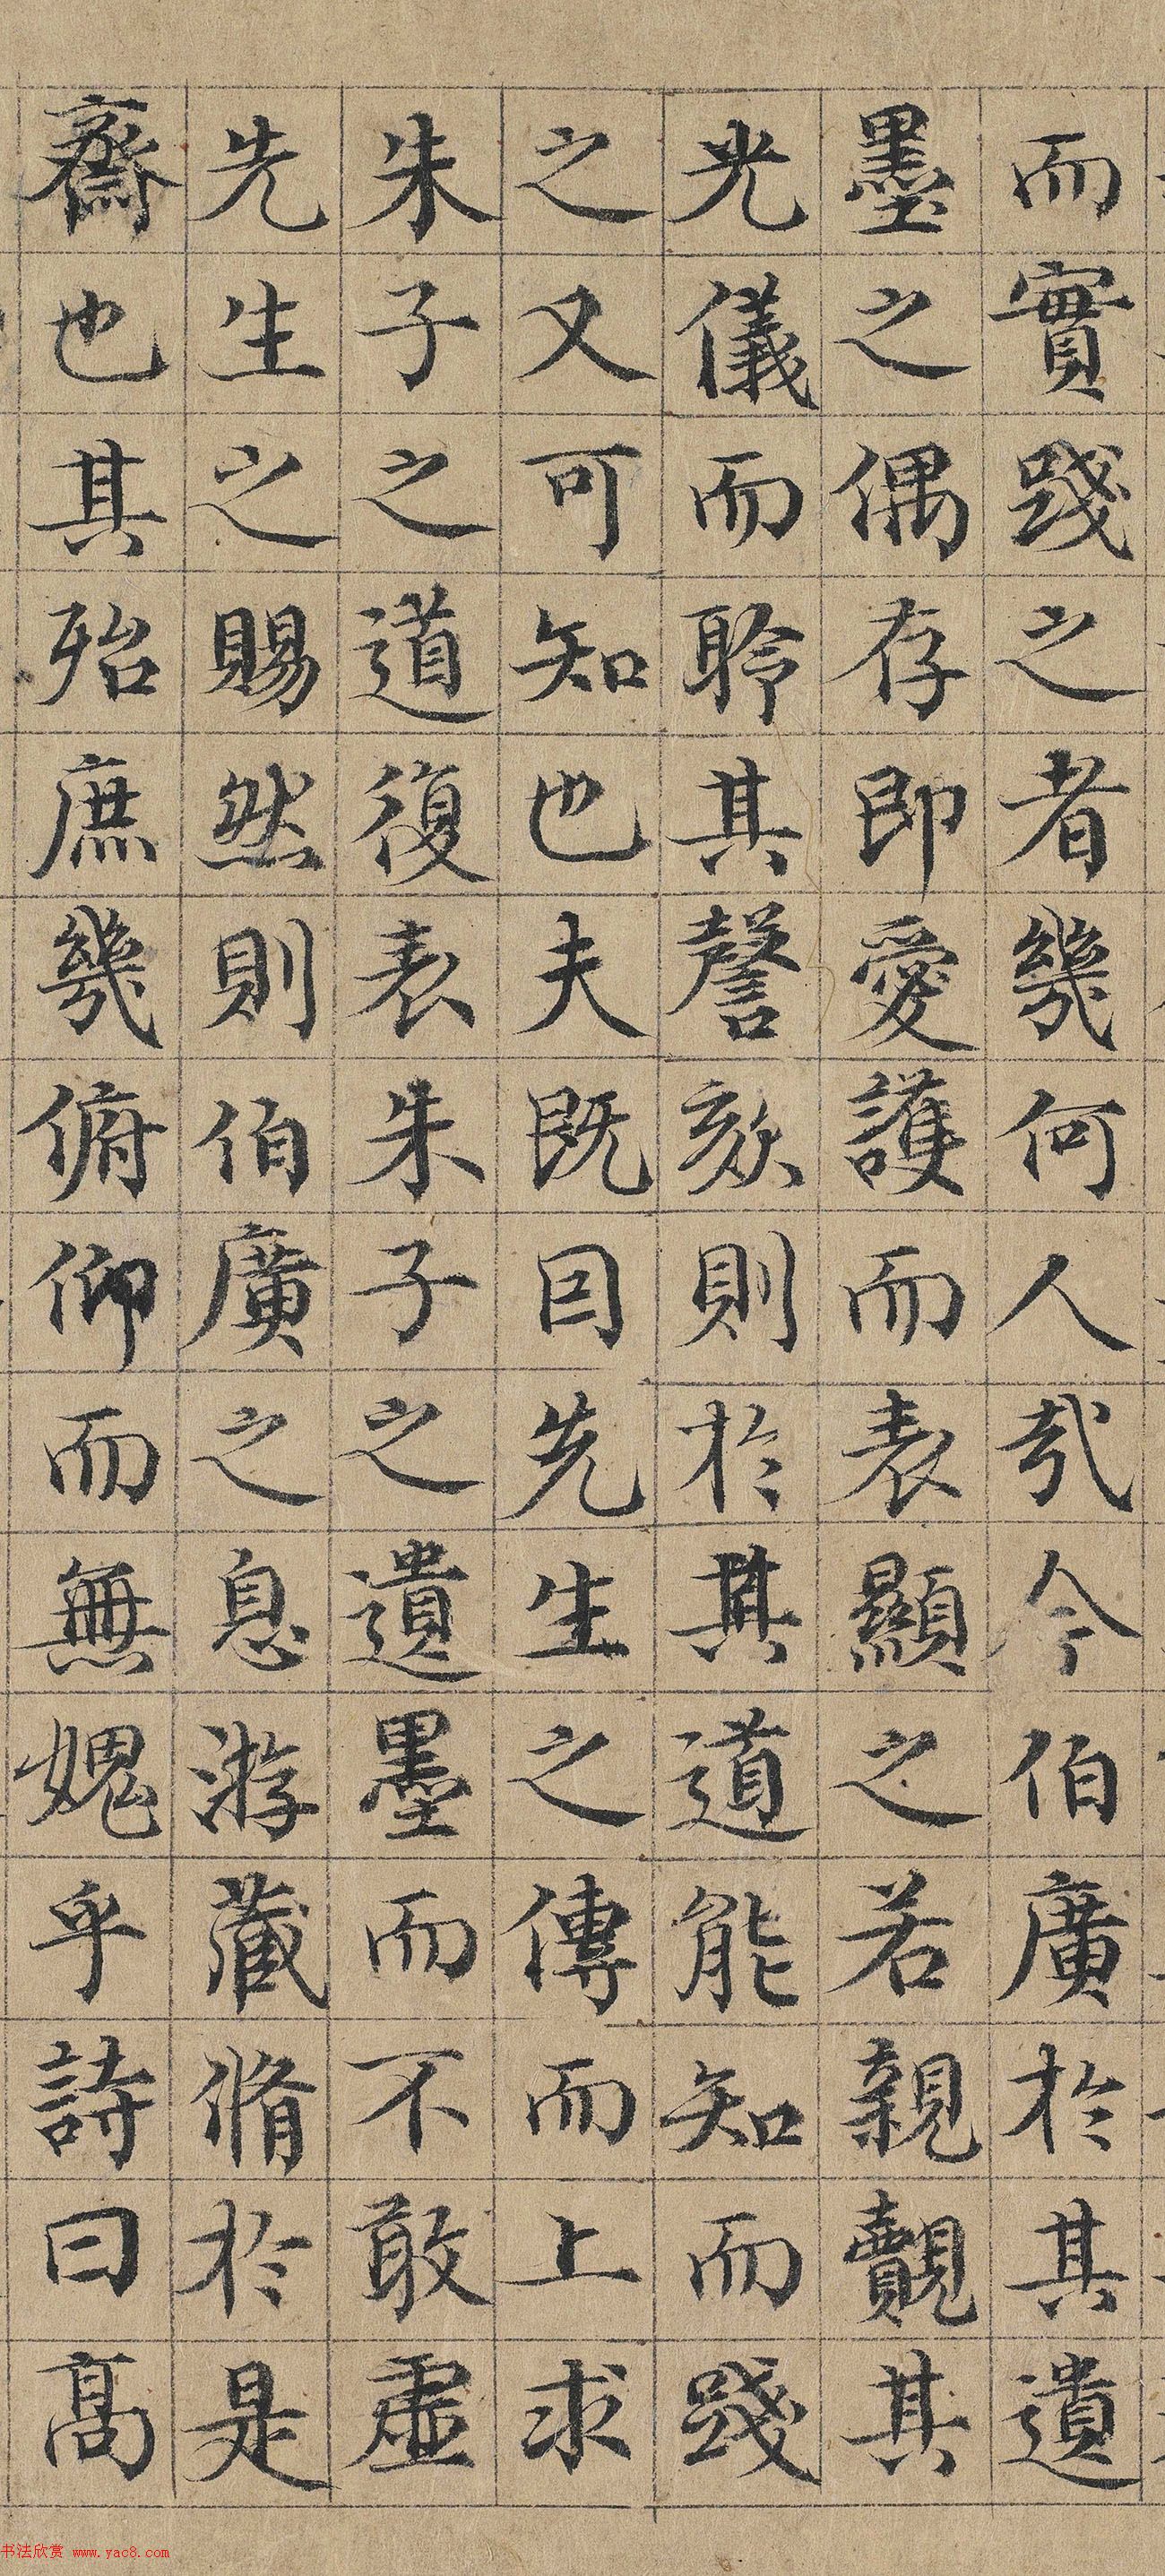 而實踐之者幾何人哉今伯廣於其遺
墨之偶存即愛護而表顯之若親覿其
光儀而聆其謦欬則於其道能知而踐
之又可知也夫既因先生之傳而上求
朱子之道復表朱子之遺墨而不敢虛
先生之賜然則伯廣之息游藏脩於是
齋也其殆庶幾俯仰而無媿乎詩曰高
书法欣赏 www.yac8.com